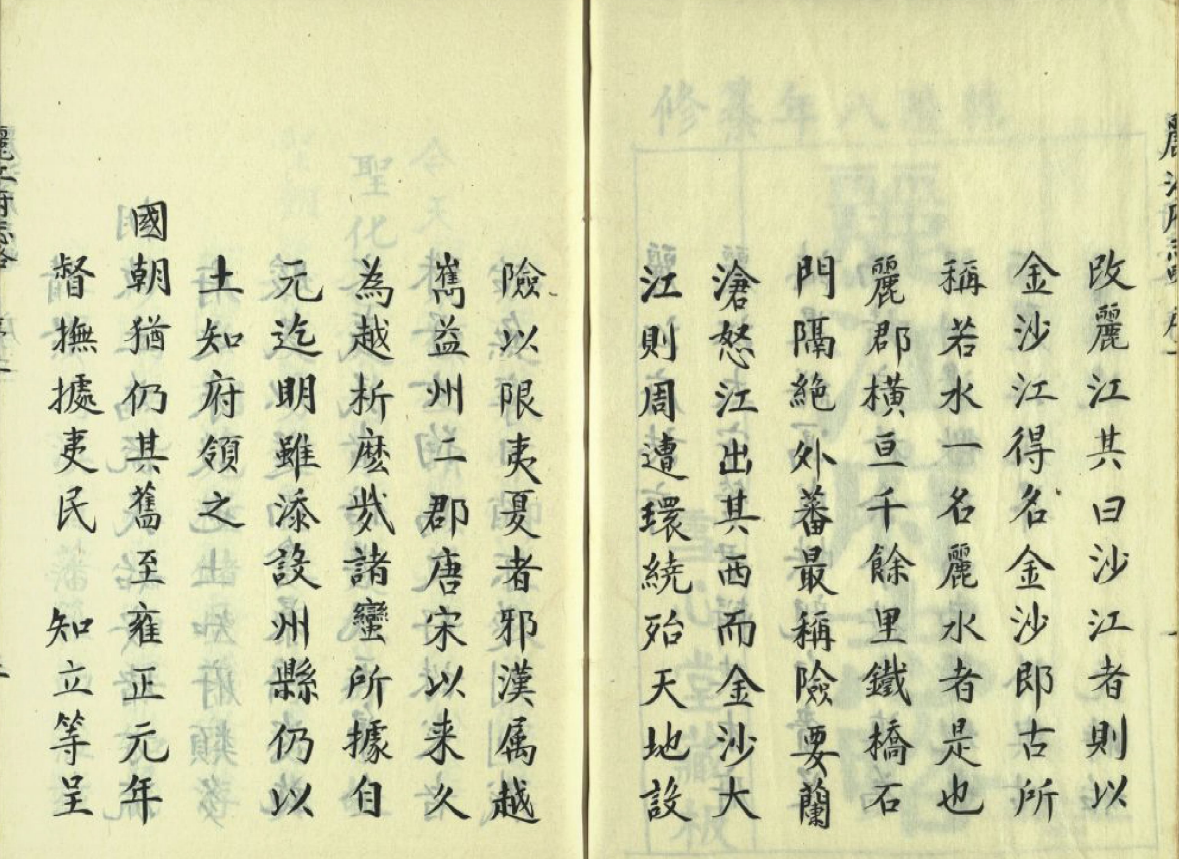 改麗江其曰沙江者則以
金沙江得名金沙郎古所
稱若水一名麗水者是也
麗郡橫亘千餘里鐵橋石
門隔絶外蕃最稱險要蘭
滄怒江出其西而金沙大
江則周遭環繞殆天地設
險以限夷夏者邪漢属越
嶲益州二郡唐宋以来久
為越析麽㱔諸蠻所據自
元迄明雖添設州縣仍以
土知府領之
國朝猶仍其舊至雍正元年
督撫據吏民 知立等呈
麗江府志畧